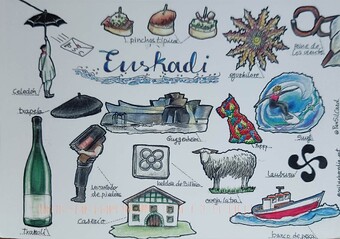 pinchos típicos
Euskadi
eguzkilore
Peine de
los vientos
Celedón
Txapela
Guggenheim
Puppy
Surf
levantador
de piedras
baldosa de Bilbao
oveja latxa
lauburu
Txakoli
Caserío
barco de pesca